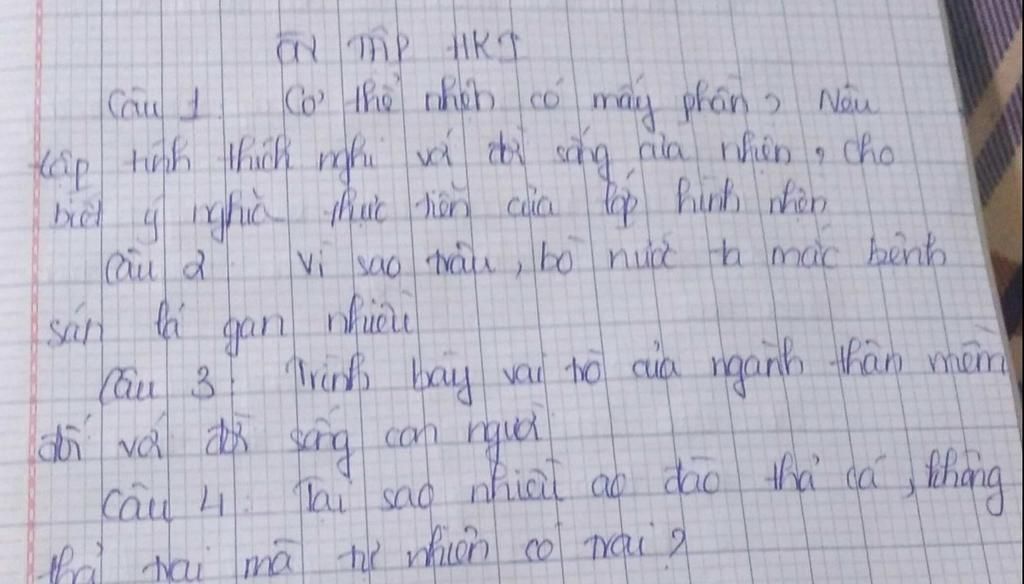 ÔN TẬP HKI
Câu 1 Cơ thể nhện có mấy phần? Nêu
tập tính thích nghi với đời sống của nhện, cho
biết ý nghĩa thực tiễn của lớp hình nhện
Câu 2 Vì sao trâu, bò nước ta mắc bệnh
sán lá gan nhiều
Câu 3: Trình bày vai trò của ngành thân mềm
đối với đời sống con người
Câu 4: Tại sao nhiều ao đào thả cá, không
thả trai mà tự nhiên có trai?